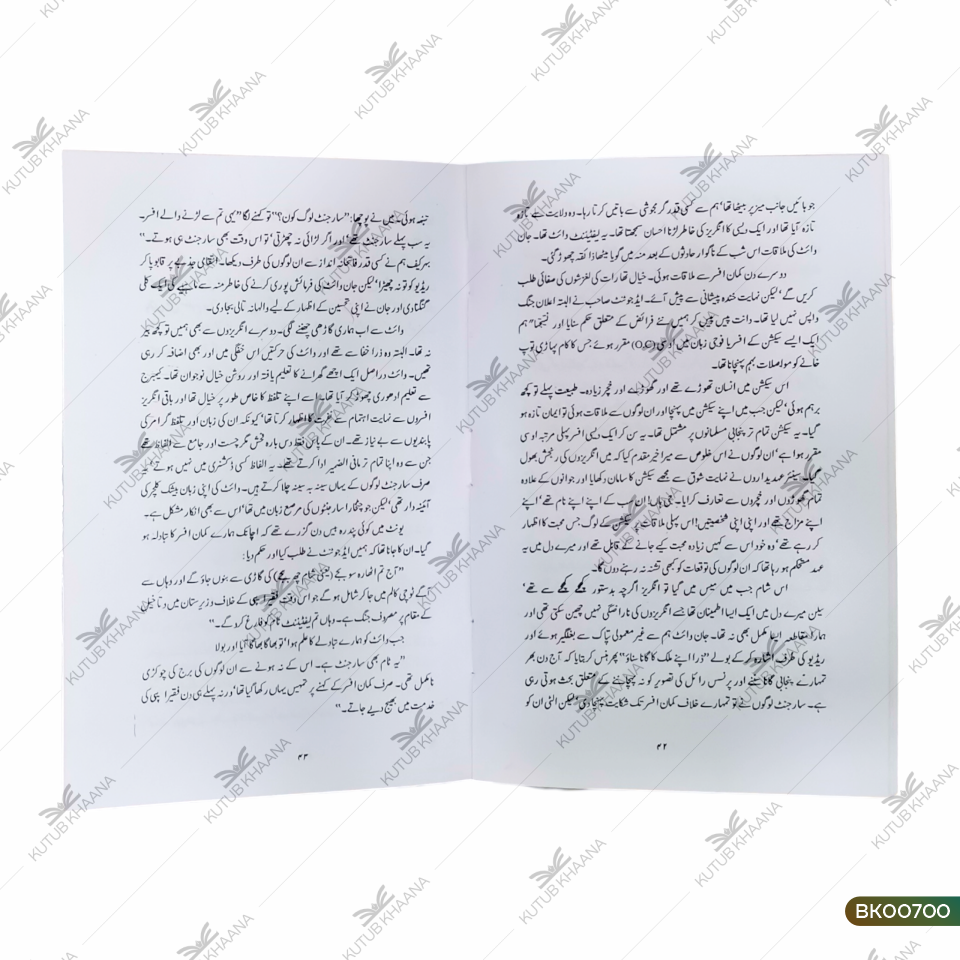 جو بائیں جانب میز پر بیٹھا تھا‘ ہم سے کسی قدر گرمجوشی سے باتیں کرتا رہا۔ وہ ولایت سے تازہ
تازہ آیا تھا اور ایک دیسی کا انگریز کا لڑنا احسان سمجھتا تھا۔ یہ لیفٹیننٹ وائٹ تھا۔ جان
وائٹ کی ملاقات اس شب کے ناگوار حادثوں کے بعد منہ میں گویا میٹھا ذائقہ چھوڑ گئی۔
دوسرے دن کمان افسر سے ملاقات ہوئی۔ خیال تھا رات کی لغزشوں کی صفائی طلب
کریں گے‘ لیکن نہایت خندہ پیشانی سے پیش آئے۔ ایڈجوٹنٹ صاحب نے البتہ اعلان جنگ
واپس نہیں لیا تھا۔ دانت پیس پیس کر ہمیں نئے فرائض کے متعلق حکم سنایا اور نتیجتاً ہم
ایک ایسے سیکشن کے افسر یا فوجی زبان میں اوسی (O.C) مقرر ہوئے جس کا کام پہاڑی توپ
خانے کو مواصلات بہم پہنچانا تھا۔
اس سیکشن میں انسان تھوڑے تھے اور گھوڑے اور خچر زیادہ۔ طبیعت پہلے تو کچھ
برہم ہوئی‘ لیکن جب میں اپنے سیکشن میں پہنچا اور ان لوگوں سے ملاقات ہوئی تو ایمان تازہ ہو
گیا۔ یہ سیکشن تمام تر پنجابی مسلمانوں پر مشتمل تھا۔ یہ سن کر ایک دیسی افسر پہلی مرتبہ اوسی
مقرر ہوا ہے‘ ان لوگوں نے اس خلوص سے میرا خیر مقدم کیا کہ میں انگریزوں کی رنجش بھول
گیا۔ سینئر عہدیداروں نے نہایت شوق سے مجھے سیکشن کا سامان دکھایا اور جوانوں کے علاوہ
تمام گھوڑوں اور خچروں سے تعارف کرایا۔ جی ہاں! ان سب کے اپنے اپنے نام تھے‘ اپنے
اپنے مزاج تھے اور اپنی اپنی شخصیتیں! اس پہلی ملاقات پر سیکشن کے لوگ جس محبت کا اظہار
کر رہے تھے‘ وہ خود اس سے کہیں زیادہ محبت کیے جانے کے قابل تھے اور میرے دل میں یہ
عہد مستحکم ہو رہا تھا کہ ان لوگوں کی توقعات کو کبھی تشنہ نہ رہنے دوں گا۔
اس شام جب میں میس میں گیا تو انگریز اگرچہ بدستور کھچے کھچے سے تھے‘
لیکن میرے دل میں ایک ایسا اطمینان تھا جسے انگریزوں کی ناراضگی نہیں چھین سکتی تھی اور
ہمارا مقاطعہ ایسا مکمل بھی نہ تھا۔ جان وائٹ ہم سے غیر معمولی تپاک سے بغلگیر ہوئے اور
ریڈیو کی طرف اشارہ کر کے بولے ’’ذرا اپنے ملک کا گانا سناؤ‘‘ پھر ہنس کر بتایا کہ آج دن بھر
تمہارے پنجابی گانا سننے اور پرنسس رائل کی تصویر کو نہ پہچاننے کے متعلق بحث ہوتی رہی
ہے۔ سارجنٹ لوگوں نے تو تمہارے خلاف کمان افسر تک شکایت پہنچا دی‘ لیکن الٹی ان کو
۴۲
تنبیہ ہوئی۔ میں نے پوچھا: ’’سارجنٹ لوگ کون؟‘‘ تو کہنے لگا ’’یہی تم سے لڑنے والے افسر۔
یہ سب پہلے سارجنٹ تھے‘ اور اگر لڑائی نہ چھڑتی‘ تو اس وقت بھی سارجنٹ ہی ہوتے۔‘‘
بہرکیف ہم نے کسی قدر فاتحانہ انداز سے ان لوگوں کی طرف دیکھا۔ انتقامی جذبے پر قابو پا کر
ریڈیو کو تو نہ چھیڑا‘ لیکن جان وائٹ کی فرمائش پوری کرنے کی خاطر منہ سے ماہیے کی ایک کلی
گنگنا دی اور جان نے اپنی تحسین کے اظہار کے لیے والہانہ تالی بجا دی۔
وائٹ سے اب ہماری گاڑھی چھننے لگی۔ دوسرے انگریزوں سے بھی ہمیں تو کچھ بیر
نہ تھا۔ البتہ وہ ذرا خفا سے تھے اور وائٹ کی حرکتیں اس خفگی میں اور بھی اضافہ کر رہی
تھیں۔ وائٹ دراصل ایک اچھے گھرانے کا تعلیم یافتہ اور روشن خیال نوجوان تھا۔ کیمبرج
سے تعلیم ادھوری چھوڑ کر آیا تھا۔ اسے اپنے تلفظ کا خاص طور پر خیال تھا اور باقی انگریز
افسروں سے نہایت اہتمام سے نفرت کا اظہار کرتا تھا‘ کیونکہ ان کی زبان اور تلفظ گرامر کی
پابندیوں سے بے نیاز تھے۔ ان کے پاس فقط دس بارہ فحش مگر چست اور جامع سے الفاظ تھے
جن سے وہ اپنا تمام تر مافی الضمیر ادا کرتے تھے۔ یہ الفاظ کسی ڈکشنری میں نہیں ہوتے‘ یہ
صرف سارجنٹ لوگوں کے یہاں سینہ بہ سینہ چلا کرتے ہیں۔ وائٹ کی اپنی زبان بیشک کلچر کی
آئینہ دار تھی‘ لیکن جو چٹخارا سارجنٹوں کی مرصع زبان میں تھا‘ اس سے بھی انکار مشکل ہے۔
یونٹ میں کوئی پندرہ بیس دن گزرے تھے کہ اچانک ہمارے کمان افسر کا تبادلہ ہو
گیا۔ ان کا جانا تھا کہ ہمیں ایڈجوٹنٹ نے طلب کیا اور حکم دیا:
’’آج تم اٹھارہ سو بجے (یعنی شام چھ بجے) کی گاڑی سے بنوں جاؤ گے اور وہاں سے
آگے فوجی کالم میں جا کر شامل ہو گے جو اس وقت فقیر ایپی کے خلاف وزیرستان میں دتا خیل
کے مقام پر مصروف جنگ ہے۔ وہاں تم لیفٹیننٹ نام کو فارغ کرو گے۔‘‘
جب وائٹ کو ہمارے تبادلے کا علم ہوا‘ تو بھاگا بھاگا آیا اور بولا
’’یہ نام بھی سارجنٹ ہے۔ اس کے نہ ہونے سے ان لوگوں کی برج کی چوکڑی
نامکمل تھی۔ صرف کمان افسر کے کہنے پر تمہیں یہاں رکھا گیا تھا‘ ورنہ پہلے ہی دن فقیر ایپی کی
خدمت میں بھیج دیے جاتے۔‘‘
۴۳
KUTUB KHAANA
BK00700